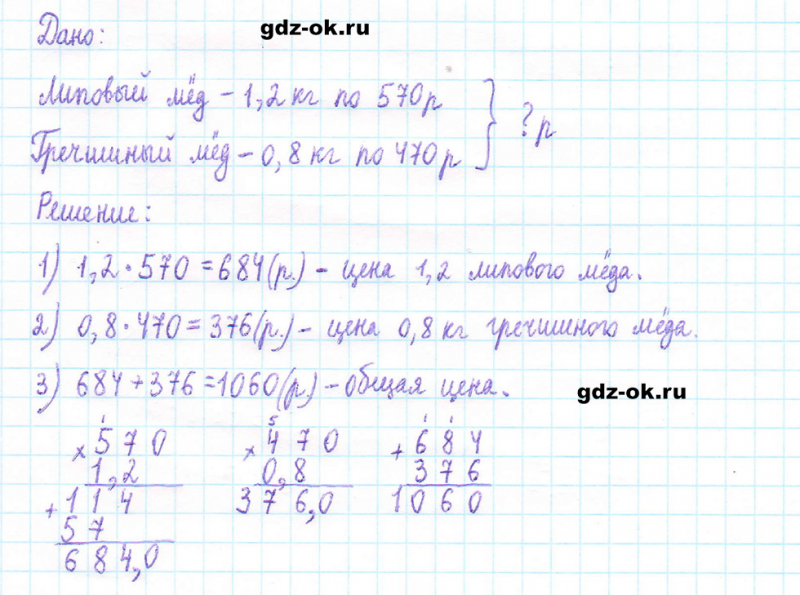 gdz-ok.ru
Дано:
Липовый мёд – 1,2 кг по 570 р
Гречишный мёд – 0,8 кг по 470 р
? р
Решение:
1) 1,2 · 570 = 684 (р.) – цена 1,2 липового мёда.
2) 0,8 · 470 = 376 (р.) – цена 0,8 кг гречишного мёда.
3) 684 + 376 = 1060 (р.) – общая цена.
gdz-ok.ru
1
× 570
1,2
+ 114
57
684,0
5
× 470
0,8
376,0
1 1
+ 684
376
1060